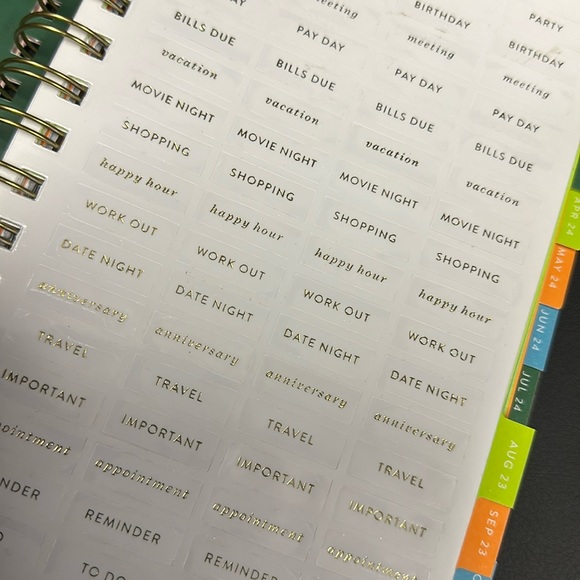 BIRTHDAY
PARTY
BILLS DUE
PAY DAY
meeting
BIRTHDAY
vacation
BILLS DUE
PAY DAY
meeting
MOVIE NIGHT
vacation
BILLS DUE
PAY DAY
SHOPPING
MOVIE NIGHT
vacation
BILLS DUE
happy hour
SHOPPING
MOVIE NIGHT
vacation
WORK OUT
happy hour
SHOPPING
MOVIE NIGHT
DATE NIGHT
WORK OUT
happy hour
SHOPPING
anniversary
DATE NIGHT
WORK OUT
happy hour
TRAVEL
anniversary
DATE NIGHT
WORK OUT
IMPORTANT
TRAVEL
anniversary
DATE NIGHT
IMPORTANT
TRAVEL
anniversary
appointment
IMPORTANT
TRAVEL
REMINDER
appointment
IMPORTANT
TO DO
REMINDER
appointment
APR 24
MAY 24
JUN 24
JUL 24
AUG 23
SEP 23